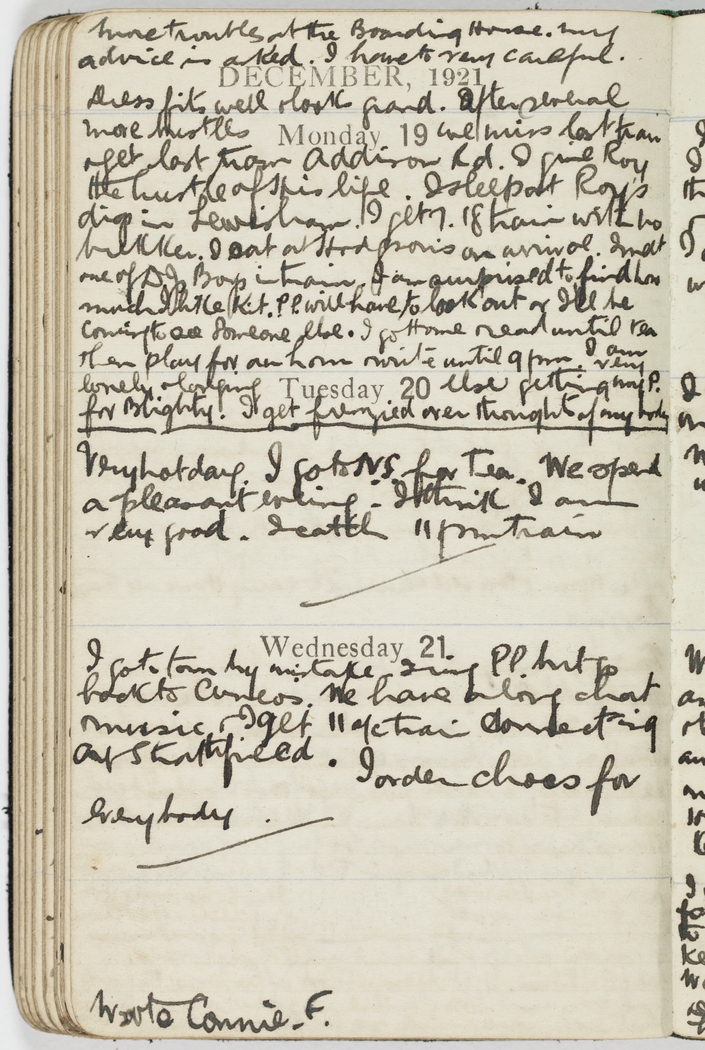 more troubles at the Boarding House. my
advice is asked. I have to very careful.
DECEMBER, 1921
Dress fits well & looks grand. After several
more hustles
Monday 19
we miss last tram
& get last from Addison Rd. I give Roy
the hustle of his life. I sleep at Roy's
digs in Lewisham. I get 7.18 train with no
I eat at Hodgsons on arrival. I met
one of D.J's Boys in train. I am surprised to find how
much I like Kit. P.P. will have to look out or I'll be
coming to see someone else. I go Home & read until tea
then play for an hour & write until 9 pm. I am very
lonely & longing
Tuesday 20
else getting my P.
for Blighty! I get frenzied over thought of anybody
Very hot day. I go to NS. for Tea. We spend
a pleasant evening. I think I am
very good. I catch 11 pm train
Wednesday 21.
I go to town by mistake, & ring P.P. but go
back to Cuneos. We have a long chat
& music, & I get 11 o'c train connecting
at Strathfield. I order chocs for
everybody.
Wrote Connie. F.